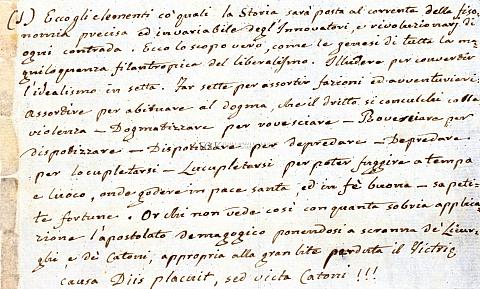 (1.) Eccogli elementi co' quali la Storia sarà posta al corrente della fiso-
nomia precisa ed invariabile degl'Innovatori, e rivoluzionarj di
ogni contrada. Ecco lo scopo vero, come le genesi di tutta la ma-
gniloquenza filantropica del liberalismo. Illudere per convertir
l'idealismo in setta. Far sette per assortir fazioni ed avventurieri.
Assordire per abituare al dogma, che il dritto si conculchi colla
violenza — Dogmatizzare per rovesciare — Rovesciare per
dispotizzare — Dispotizzare per depredare — Depredare
per locupletarsi — Lucupletarsi per poter fuggire a tempo
e luoco, onde godere in pace santa ed in fè buona —
te fortune. Or chi non vede così con quanta sobria applica-
zione l'apostolato demagogico ponendosi a scranna de' Licur-
ghi e de' Catoni, appropria alla gran lite perduta il Victrix
causa Diis placuit, sed victa Catoni!!!